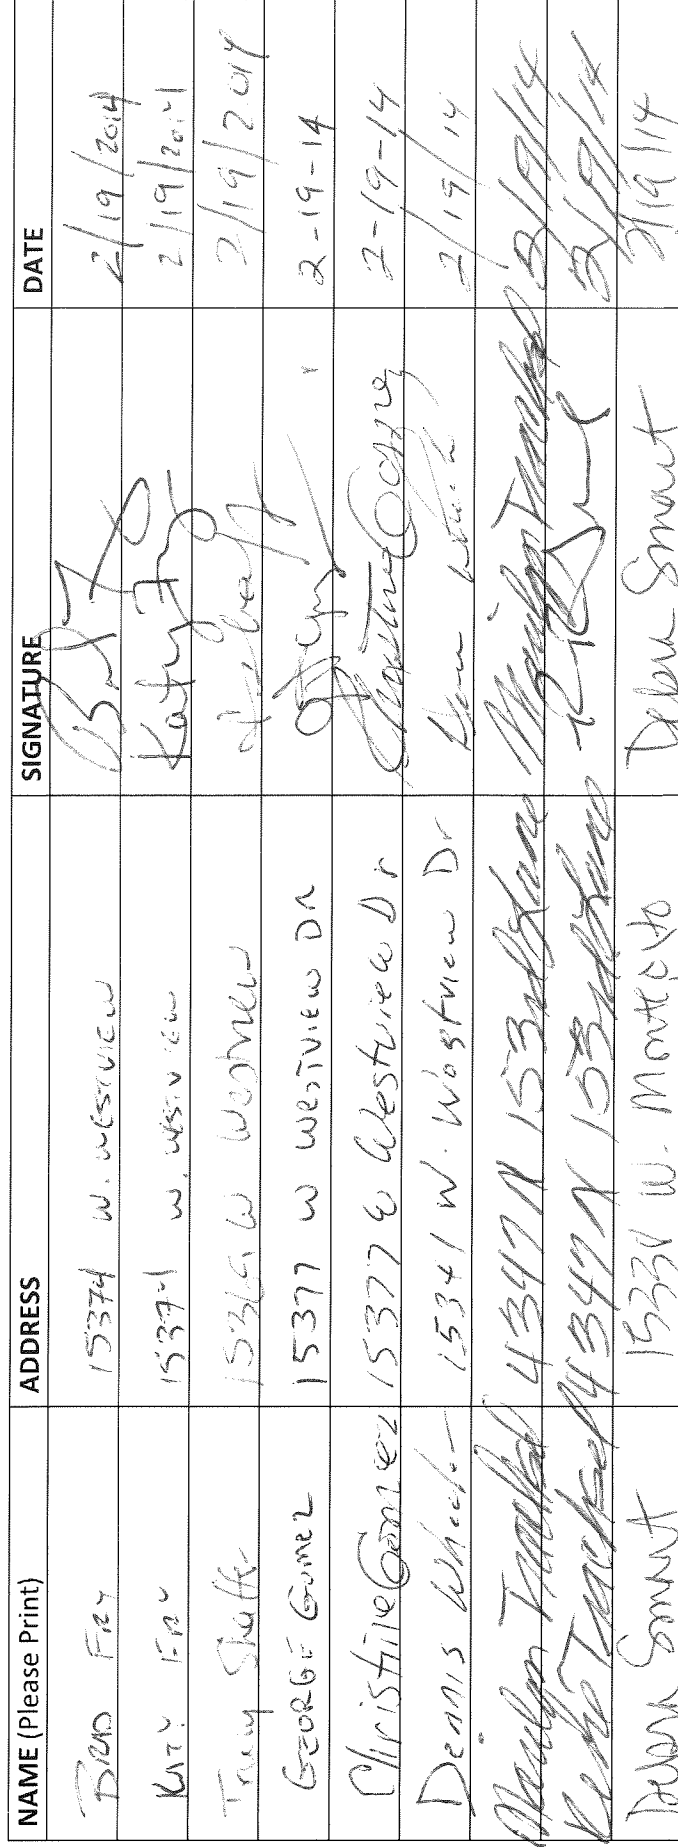 NAME (Please Print) ADDRESS SIGNATURE DATE
BRAD FRY 15374 W. WESTVIEW 2/19/2014
KATY FRY 15374 W. WESTVIEW Katy Fry 2/19/2014
Tracy 15369 W Westview 2/19/2014
GEORGE GOMEZ 15377 W WESTVIEW DR 2-19-14
Christine Gomez 15377 W Westview Dr Christine Gomez 2-19-14
Dennis Wheeler 15341 W. Westview Dr 2/19/14
Marilyn 4347 N 153rd Lane Marilyn 2/19/14
4347 N 153rd Lane 2/19/14
Debra Smart W. Montecito Debra Smart 2/19/14